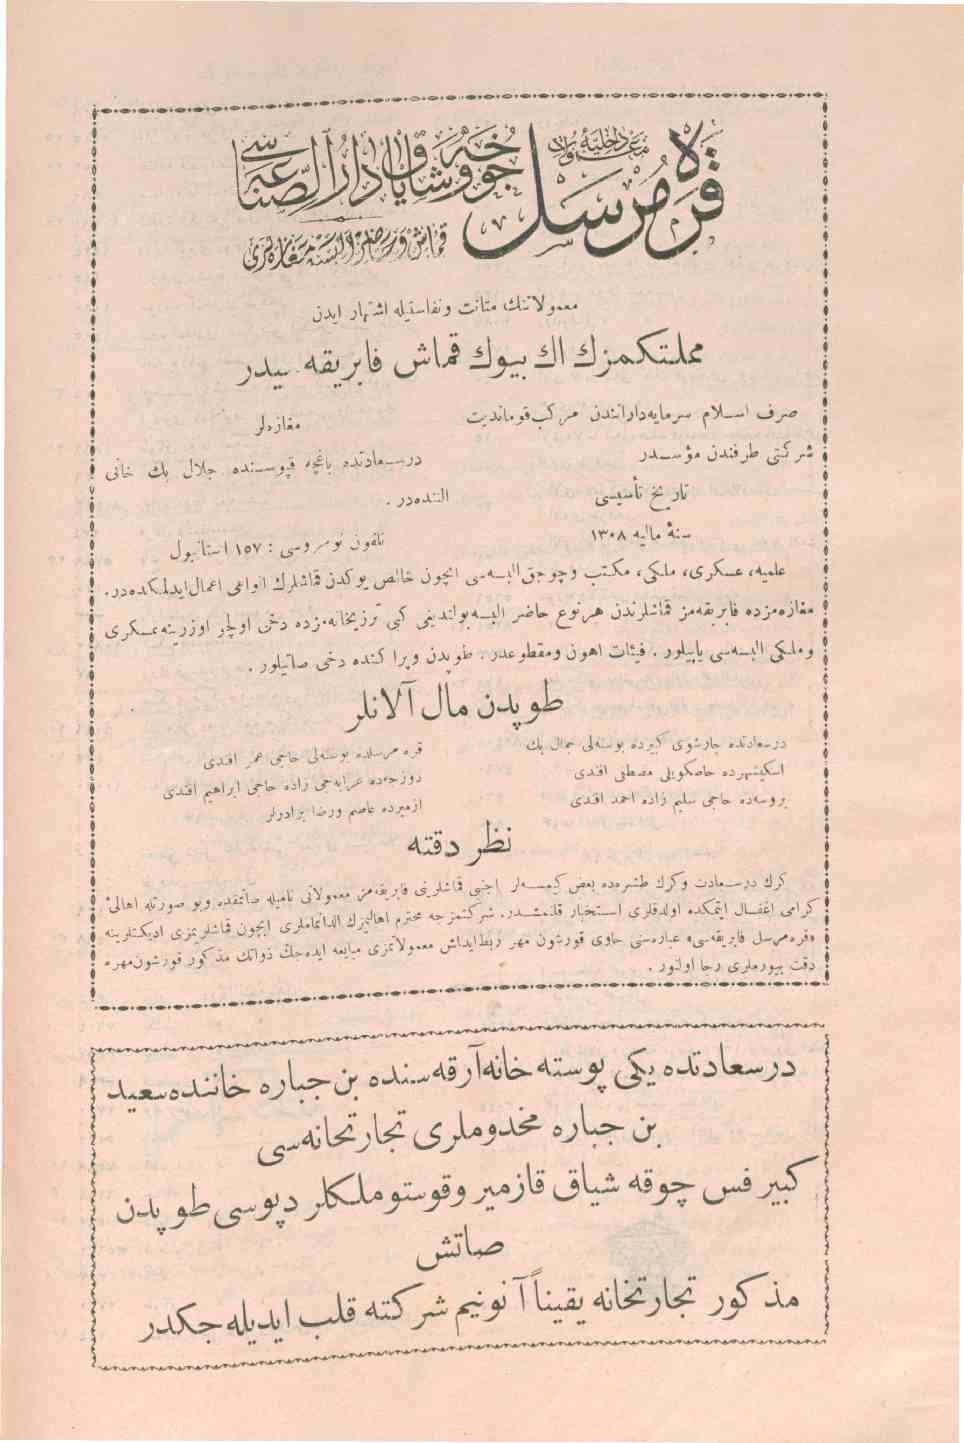 قره مرسل
جوخه وشاياق دارالصناعه سى
معمولاتنك متانت ونفاستيله اشتهار ايدن
مملكتمزك اك بيوك قماش فابريقه سيدر
صرف اسلام سرمايه‌دارانندن مركب قومانديت
شركتى طرفندن مؤسسدر
تاريخ تأسيسى
سنۀ ماليه ١٣٠٨
مغازه‌لر
درسعادتده باغچه قپوسنده جلال بك خانى
التنده‌در .
تلفون نومروسى : ١٥٧ استانبول
علميه، عسكرى، ملكى، مكتب وچوجق البسه‌سى ايچون خالص يوكدن قماشلرك انواعى اعمال ايدلمكده‌در.
مغازه‌مزده فابريقه‌مز قماشلرندن هرنوع حاضر البسه بولنديغى كبى ترزيخانه‌مزده دخى اولچو اوزرينه عسكرى
وملكى البسه‌سى ياپيلور . فيئات اهون ومقطوعدر . طوپدن وپراكنده دخى صاتيلور .
طوپدن مال آلانلر
درسعادتده چارشوى كبيرده بوسنه‌لى جمال بك
اسكيشهرده خاصكويلى مصطفى افندى
بروسه‌ده حاجى سليم زاده احمد افندى
قره مرسلده بوسنه‌لى حاجى عمر افندى
دوزجه‌ده عرابه‌جى زاده حاجى ابراهيم افندى
ازميرده عاصم ورضا برادرلر
نظر دقته
كرك درسعادت وكرك طشره‌ده بعض كيمسه‌لر اجنبى قماشلرينى فابريقه‌مز معمولاتى ناميله صاتمقده وبو صورتله اهالئ
كرامى اغفال ايتمكده اولدقلرى استخبار قلنمشدر. شركتمزجه محترم اهاليمزك الدانماملرى ايچون قماشلريمزى اديكتلرينه
«قره مرسل فابريقه‌سى» عباره‌سنى حاوى قورشون مهر ربط ايداش معمولاتمزى مبايعه ايده‌جك ذواتك مذكور قورشون مهره
دقت بيورملرى رجا اولنور .
درسعادتده يكى پوسته خانه آرقه‌سنده بن جباره خاننده سعيد
بن جباره مخدوملرى تجارتخانه‌سى
كبير فس چوقه شياق قازمير وقوستوملكلر دپوسى طوپدن
صاتش
مذكور تجارتخانه يقيناً آنونيم شركته قلب ايديله‌جكدر